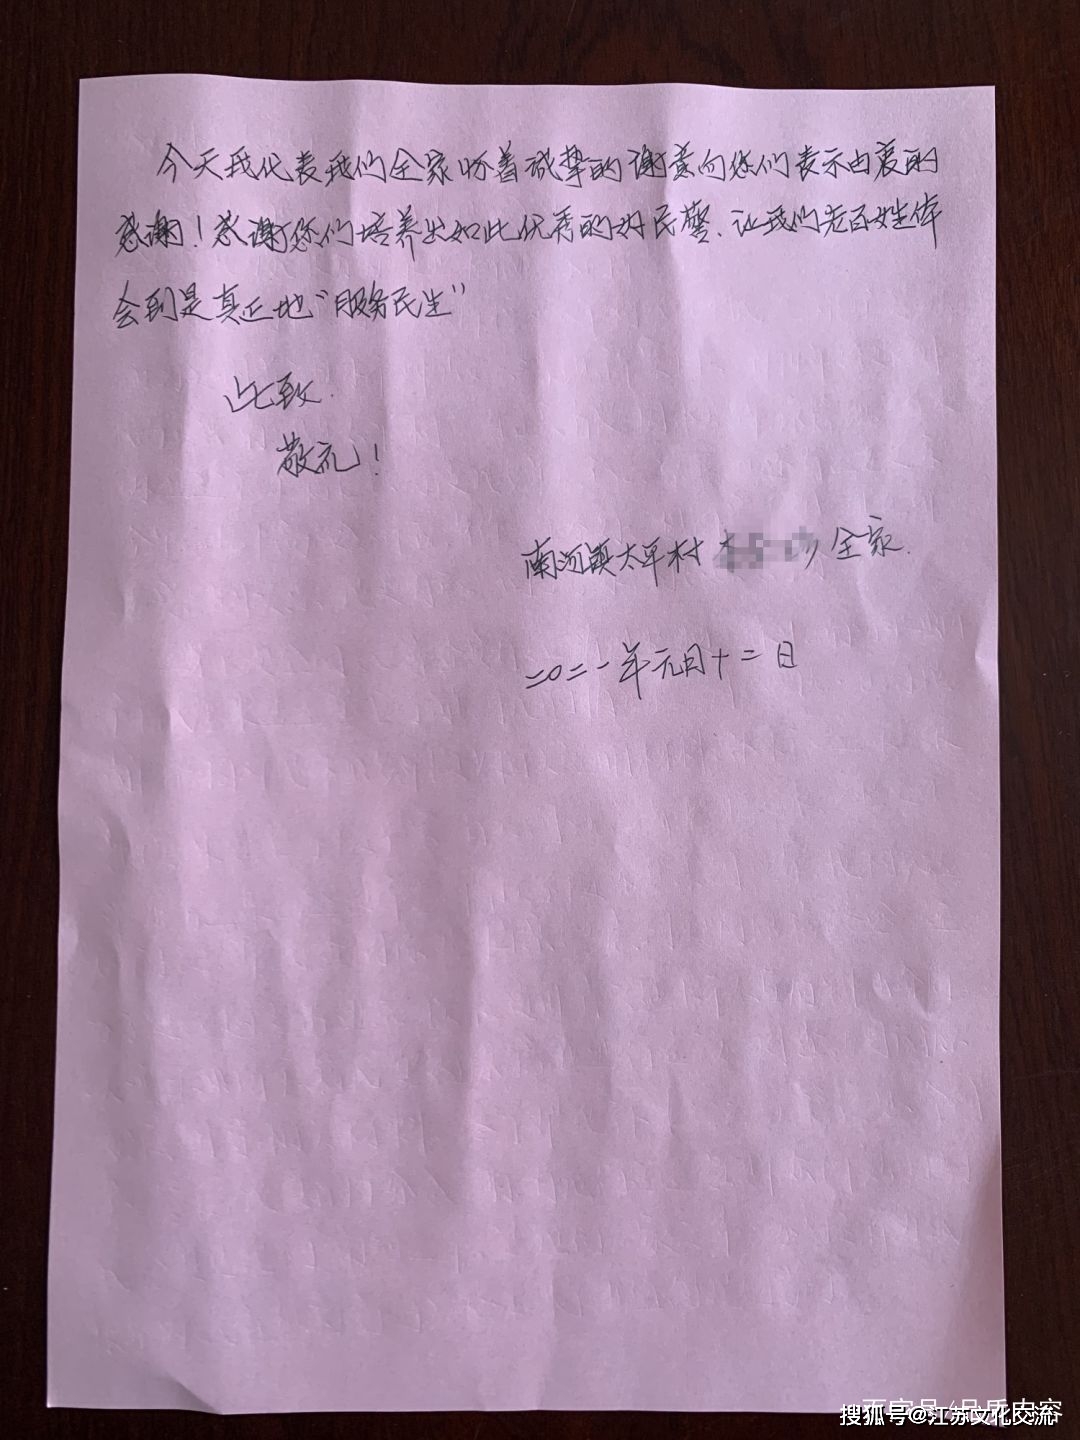 今天我代表我们全家怀着诚挚的谢意向您们表示由衷的
感谢！感谢您们培养出如此优秀的好民警、让我们老百姓体
会到是真正地“服务民生”
此致.
敬礼！
南河镇太平村 全家.
二〇二一年元月十二日
搜狐号@江苏文化交流